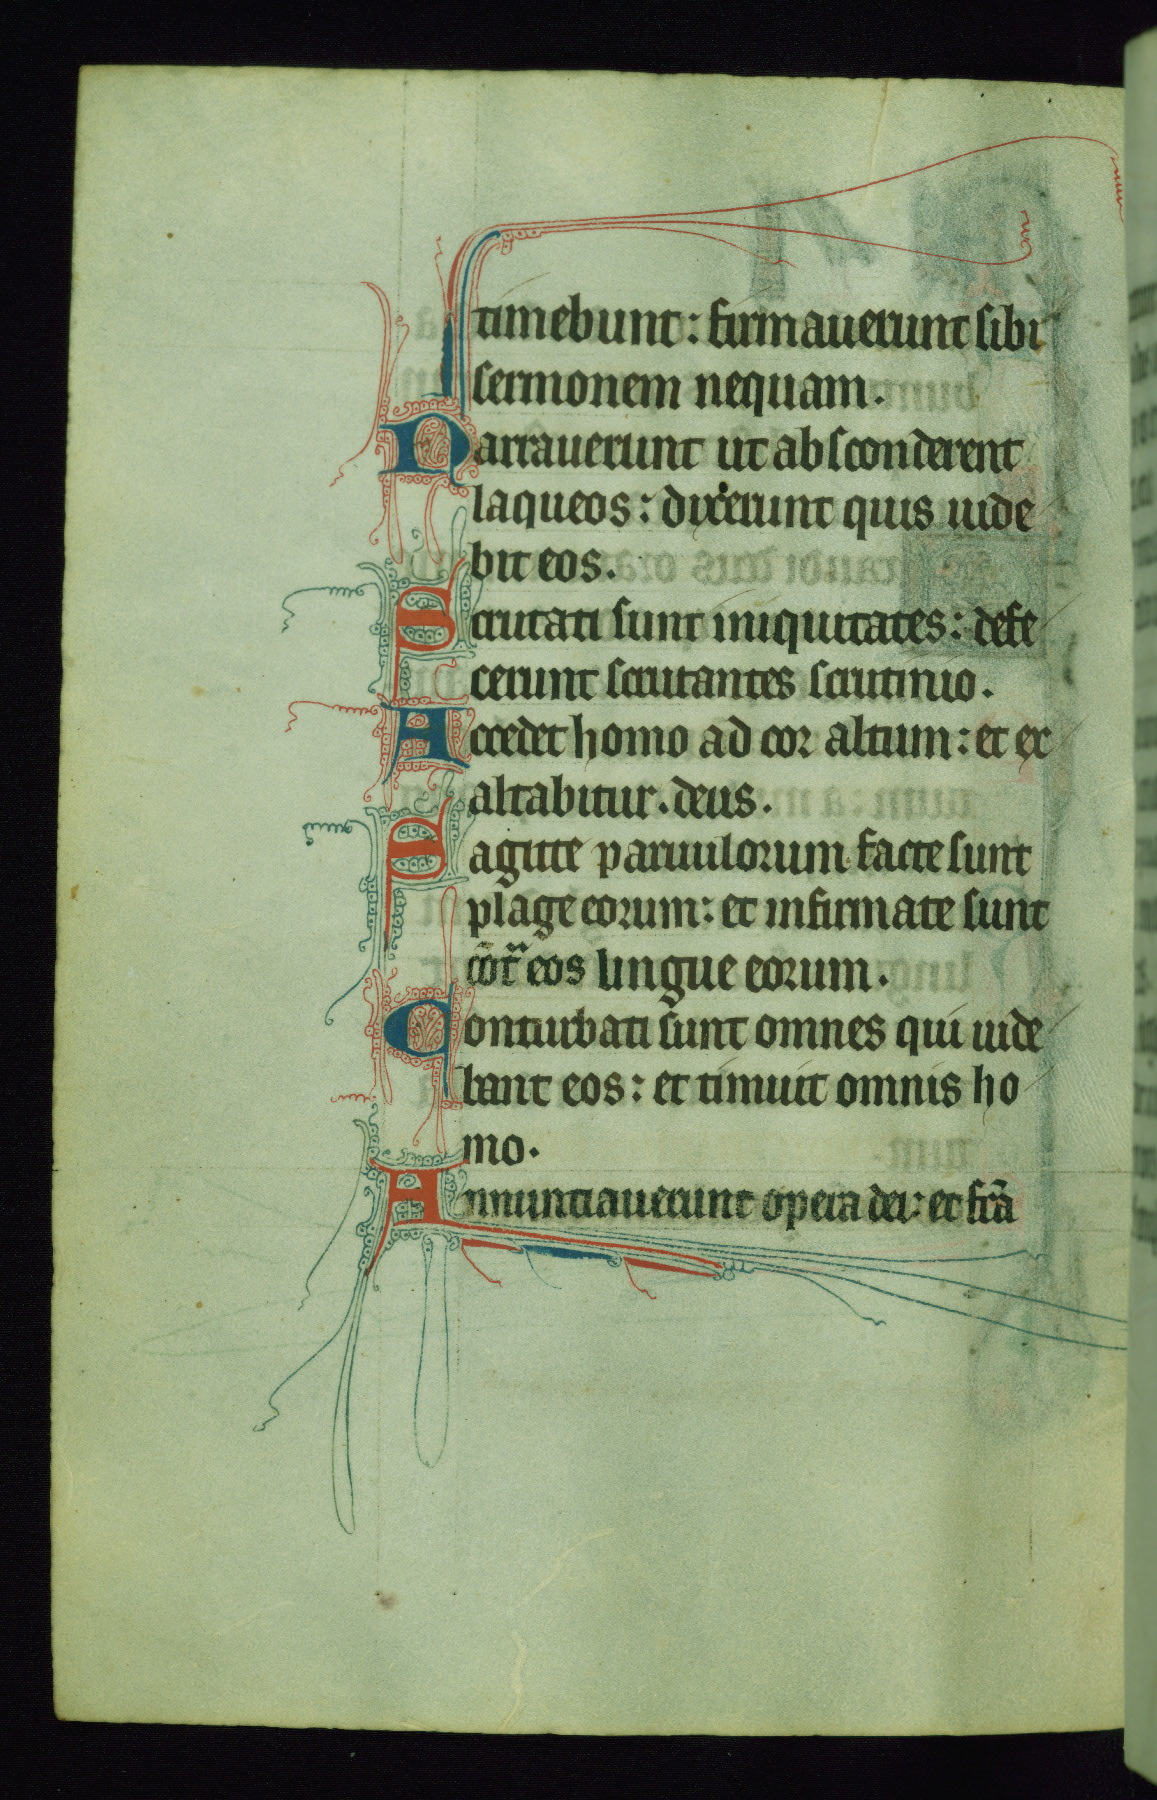 timebunt : firmauerunt sibi
sermonem nequam .
Narrauerunt ut absconderent
laqueos : dixerunt quis uide
bit eos .
Scrutati sunt iniquitates : defe
cerunt scrutantes scrutinio .
Accedet homo ad cor altum : et ex
altabitur . deus .
Sagitte paruulorum facte sunt
plage eorum : et infirmate sunt
cōtͣ eos lingue eorum .
Conturbati sunt omnes qui uide
bant eos : et timuit omnis ho
mo .
Annunciauerunt opera dei : et fc̄a